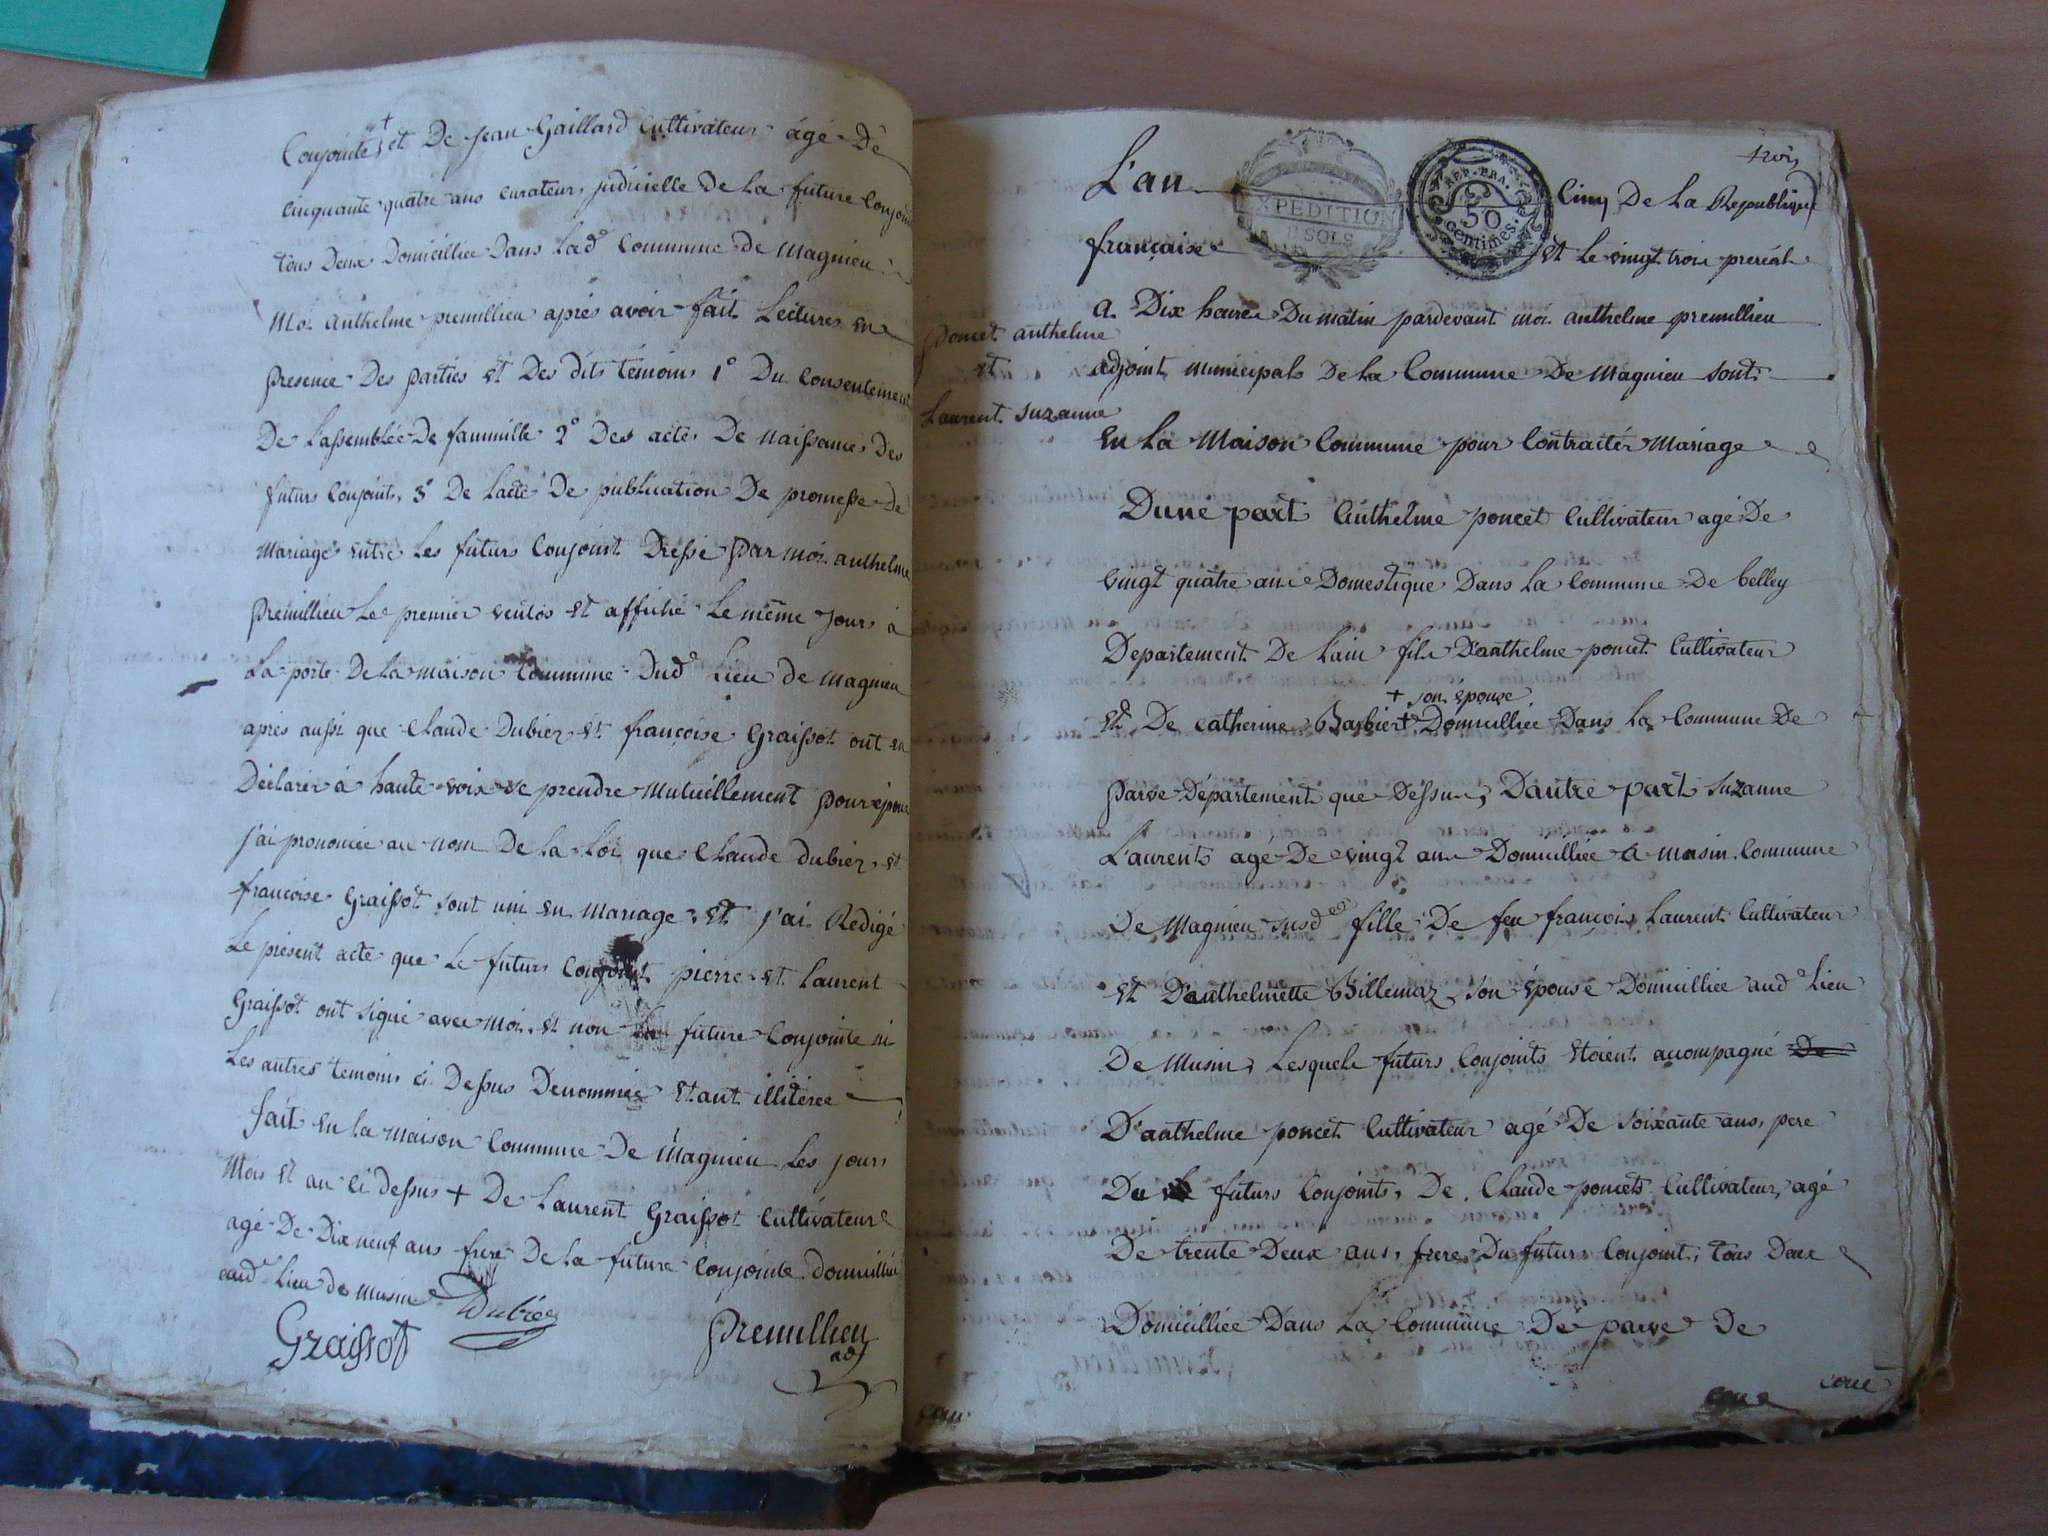 Conjointe + et De Jean Gaillard Cultivateur âgé De
cinquante quatre ans curateur judicielle De La future Conjointe
tous Deux Domicilliée Dans Lad.e Commune de Magnieu
Moi Anthelme premillieu après avoir fait Lectures en
presence Des parties et Des dits témoins 1° Du Consentement
De Lassemblée De fammille 2° Des actes De naissances Des
futurs Conjoints, 3° De Lacte De publication De promesse de
Mariage entre Les futurs Conjoint Dressé par moi anthelme
premillieu Le premier ventôs et affiché Le même jours à
La porte De la maison Commune Dud.e Lieu de Magnieu
après aussi que Claude Dubiez et françoise Graissot ont eu
Déclarer à haute voix se prendre mutuellement pour époux
j'ai prononcée au nom De La Loi que Claude Dubiez et
françoise Graissot sont uni en mariage et j'ai Redigé
Le présent acte que Le futurs Conjoint pierre et Laurent
Graissot ont signé avec moi et non La future Conjointe ni
Les autres temoins ci Dessus Denommée etant illiterée
fait en La maison Commune De Magnieu Les jours
Mois et an ci dessus + De Laurent Graissot Cultivateur
agé De Dix neuf ans frere De La future Conjointe domicillié
aud.e Lieu de musin
Dubiez
Graissot
premillieu
adj
trois
L'an Cinq De La Republique
EXPEDITION
SOLS
REP. FRA.
50
centimes.
française et Le vingt trois preréal
a Dix heures Du matin pardevant moi anthelme premillieu
poncet anthelme
et
Laurent suzanne
adjoint municipals De La Commune De Magnieu sont
en La Maison Commune pour Contracter Mariage
Dune part Anthelme poncet Cultivateur agé De
vingt quatre ans Domestique Dans La Commune De belley
Departement De Lain fils D'anthelme poncet Cultivateur
+ son épouse
et De Catherine Barbier + Domicilliée Dans La Commune De
parve Département que Dessus, Dautre part suzanne
Laurents agé De vingt ans Domicilliée a musin Commune
De Magnieu susd.e fille De feu françois Laurent Cultivateur
et D'anthelmette Billemaz son épouse Domicilliée aud.e Lieu
De Musin, Lesquels futurs Conjoints etoient acompagné De
D'anthelme poncet Cultivateur agé De soixante ans, pere
Du futurs Conjoints, De Claude poncets Cultivateur, agé
De trente Deux ans, frere Du futurs Conjoint, tous Deux
Domicilliée Dans La Commune De parve De